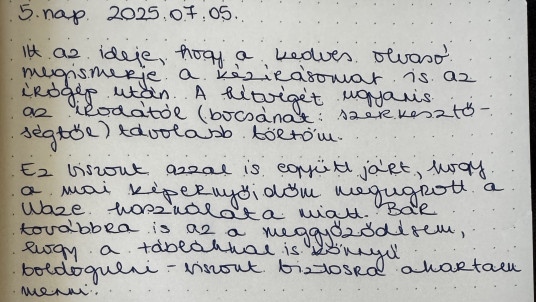 5. nap 2025.07.05.
Itt az ideje, hogy a kedves olvasó
megismerje a kézírásomat is az
írógép után. A hétvégét ugyanis
az irodától (bocsánat: szerkesztő-
ségtől) távolabb töltöm.
Ez viszont azzal is együtt járt, hogy
a mai képernyőidőm megugrott a
Waze használata miatt. Bár
továbbra is az a meggyőződésem,
hogy a táblákkal is könnyű
boldogulni - viszont biztosra akartam
menni.